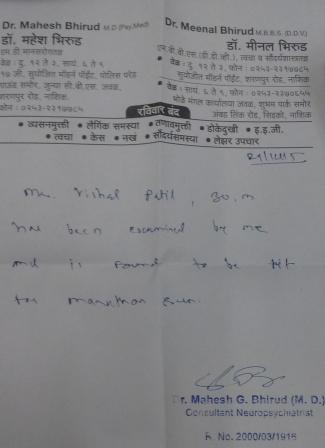 Dr. Mahesh Bhirud M.D (Psy.Med)
डॉ. महेश भिरुड
एम.डी मानसरोगतज्ञ
वेळ : दु. १२ ते २, सायं. ६ ते ९
१७ ली, सुयोजित मॉडर्न पॉईंट, पोलिस परेड
ग्राऊंड समोर, जुन्या सी.बी.एस. जवळ,
शरणपूर रोड, नाशिक.
फोन : ०२५३-२३१७७८५
Dr. Meenal Bhirud M.B.B.S. (D.D.V.)
डॉ. मीनल भिरुड
एम.बी.बी.एस (डी.डी.व्ही.), त्वचा व सौंदर्यशास्त्रतज्ञ
वेळ : दु. १२ ते २, फोन : ०२५३-२३१७७८५
सुयोजित मॉडर्न पॉईंट, शरणपूर रोड, नाशिक
वेळ : सायं. ६ ते ९, फोन : ०२५३-२३७०६५५
भोडे मंगल कार्यालया जवळ, शुभम पार्क समोर
अंबड लिंक रोड, सिडको, नाशिक.
रविवार बंद
• व्यसनमुक्ती • लैंगिक समस्या • तणावमुक्ती • डोकेदुखी • इ.इ.जी.
• त्वचा • केस • नखं • सौंदर्यसमस्या • लेझर उपचार
Mr. Vishal Patil, 30, m
has been examined by me
and is found to be fit
for marathon run.
Dr. Mahesh G. Bhirud (M. D.)
Consultant Neuropsychiatrist
R. No. 2000/03/1916